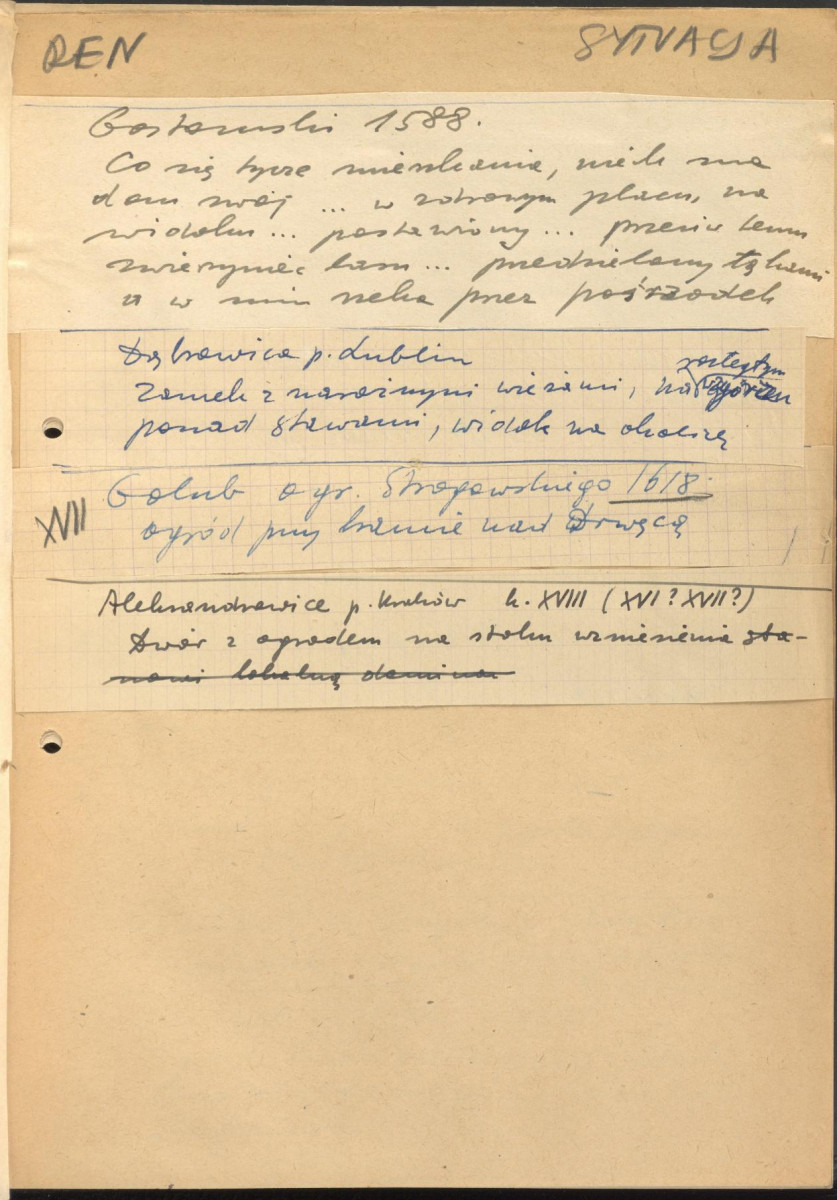 REN
SYTUACJA
Gostomski 1588.
Co się tycze mieszkania, niech ma
dom swój ... w zdrowym placu, na
widoku ... postawiony ... przeciw temu
zwierzyniec łasz ... przedzielony łąkami
a w nim rzeka przez pośrzodek
Dąbrowica p. Lublin
zamek z narożnymi wieżami, na rozległym wzgórzu
ponad stawami, widok na okolicę
XVII
Golub ogr. Strogowskiego 1618.
ogród przy bramie nad Drwęcą
Aleksandrowice p. Kraków k. XVIII (XVI? XVII?)
Dwór z ogrodem na stoku wzniesienia sta-
nowi lokalną domina